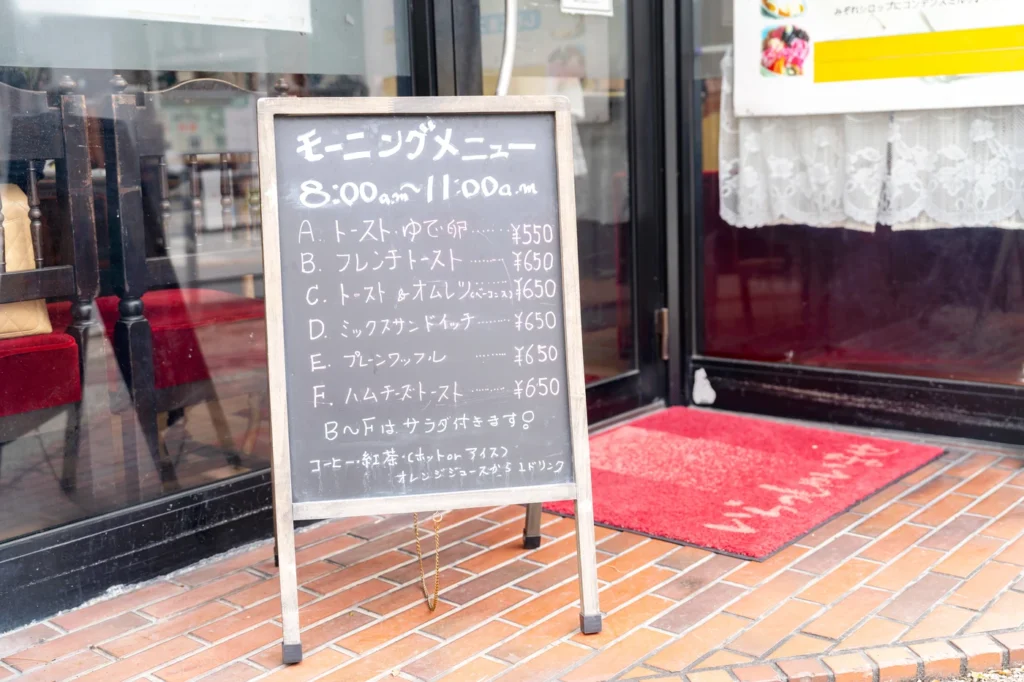 みぞれシロップにコンデンスミルク
モーニングメニュー
8:00a.m〜11:00a.m
A. トースト・ゆで卵 ······· ¥550
B. フレンチトースト ········ ¥650
C. トースト &オムレツ(ベーコン入) ¥650
D. ミックスサンドイッチ ········ ¥650
E. プレーンワッフル ········ ¥650
F. ハムチーズトースト ········ ¥650
B〜Fは サラダ付きます。
コーヒー・紅茶・(ホット or アイス)
オレンジジュースから 1ドリンク
いらっしゃいませ